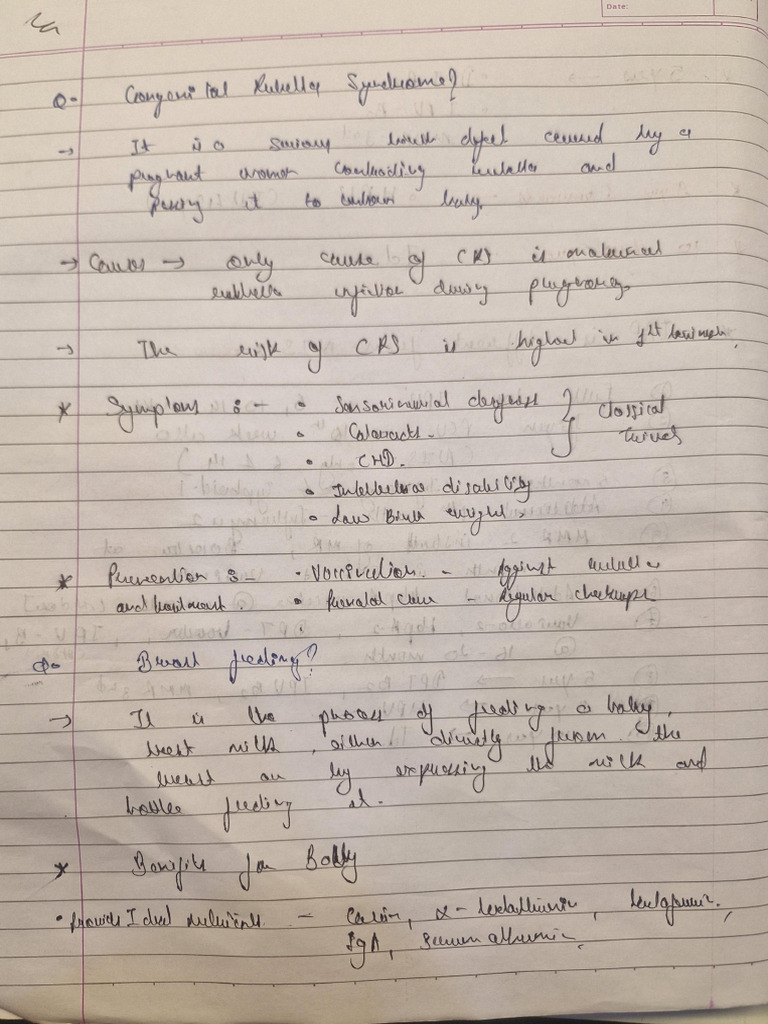 Date:
Q- Congenital Rubella Syndrome?
→ It is a serious birth defect caused by a
pregnant women contracting rubella and
passing it to unborn baby.
→ Causes → only cause of CRS is maternal
rubella infection during pregnancy.
→ The risk of CRS is highest in 1st trimester.
* Symptoms :- • Sensorineural deafness
• Cataracts.
• CHD.
} Classical
• Intellectual disability
• Low Birth weight.
* Prevention :- • Vaccination. - Against rubella
and treatment. • Prenatal care - Regular checkups
Q- Breast feeding?
→ It is the process of feeding a baby,
breast milk, either directly from the
breast or by expressing the milk and
bottle feeding it.
* Benefits for Baby
• Provides Ideal nutrients - Casein, α-lactalbumin, lactoferrin,
IgA, serum albumin.